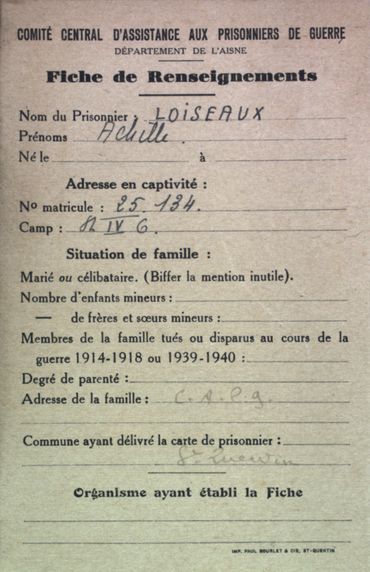 COMITÉ CENTRAL D'ASSISTANCE AUX PRISONNIERS DE GUERRE
DÉPARTEMENT DE L'AISNE
Fiche de Renseignements
Nom du Prisonnier : LOISEAUX
Prénoms Achille.
Né le à
Adresse en captivité :
No matricule : 25.134.
Camp : IV
Situation de famille :
Marié ou célibataire. (Biffer la mention inutile).
Nombre d'enfants mineurs :
— de frères et sœurs mineurs :
Membres de la famille tués ou disparus au cours de la
guerre 1914-1918 ou 1939-1940 :
Degré de parenté :
Adresse de la famille : C.A.P.G.
Commune ayant délivré la carte de prisonnier :
St Quentin
Organisme ayant établi la Fiche
IMP. PAUL BOURLET & CIE, ST-QUENTIN